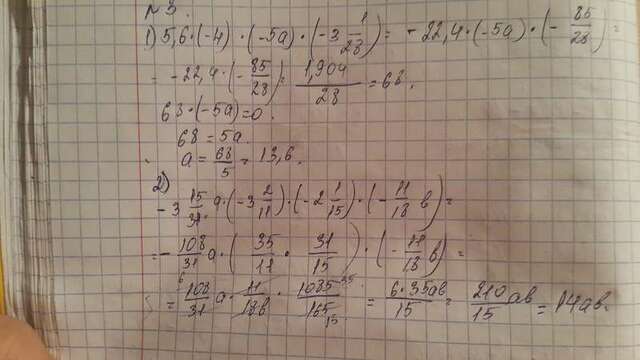 №3.
1) 5,6·(-4)·(-5a)·(-3 1/28) = -22,4·(-5a)·(-85/28) =
= -22,4·(-85/28) = 1,904/28 = 68.
68·(-5a)=0.
68 = 5a.
a = 68/5 = 13,6.
2)
-3 15/31 a·(-3 2/11)·(-2 1/15)·(-11/18 b) =
= -108/31 a·(35/11 · 31/15)·(-11/18 b) =
= 108/31 a · 11/18b · 1085/165 = 6·35ab/15 = 210ab/15 = 14ab.